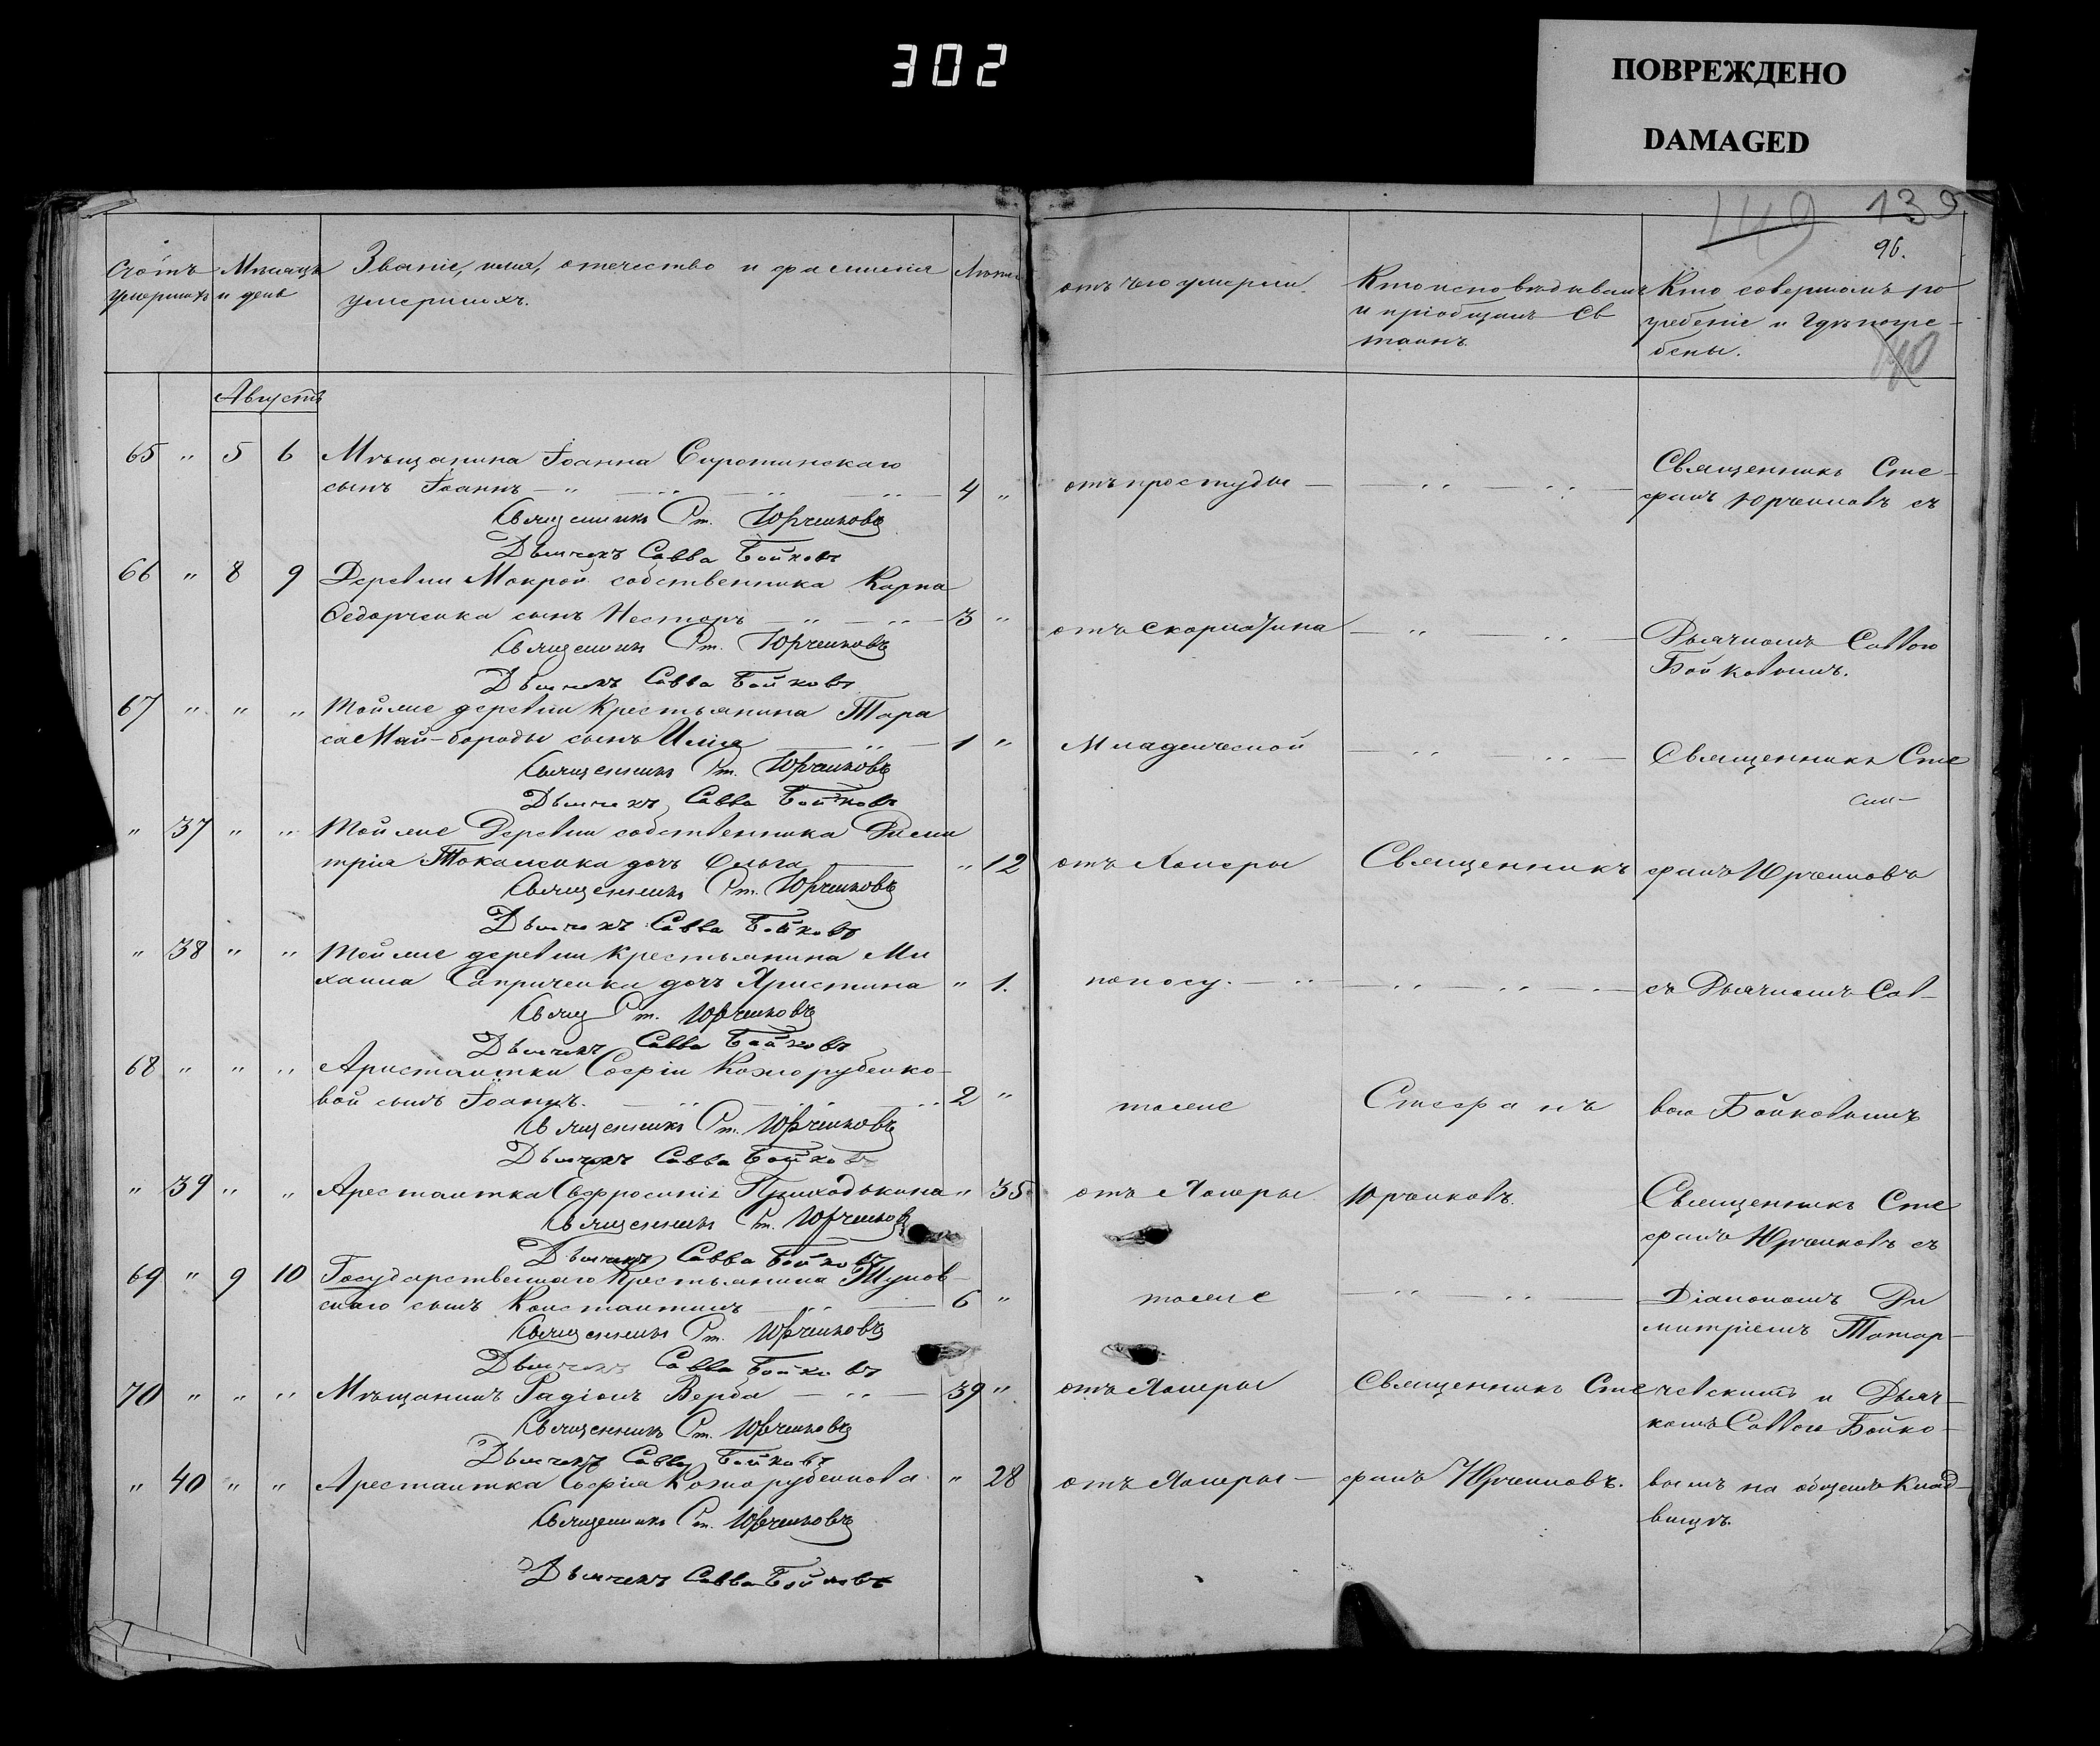 302
ПОВРЕЖДЕНО
DAMAGED
149 139
96.
Счотъ умершихъ
Мѣсяцъ и день
Званіе, имя, отечество и фамилія
умершихъ.
Лѣта
отъ чего умерли.
Кто исповѣдывалъ
и пріобщалъ Св
таинъ.
Кто совершалъ по
гребеніе и гдѣ погре-
бены.
140
Августъ
65 " 5 6 Мѣщанина Іоанна Сиротинскаго
сынъ Іоаннъ 4 " отъ простуды
Священникъ Сте-
фанъ Юрченковъ съ
Священникъ Ст. Юрченковъ
Дьячекъ Савва Бойковъ
66 " 8 9 Деревни Мокрой собственника Карпа
Ѳедорченка сынъ Несторъ 3 " отъ скарлатина
Дьячкомъ Саввою
Бойковымъ.
Священникъ Ст. Юрченковъ
Дьячекъ Савва Бойковъ
67 " " " Той же деревни крестьянина Тара
са Май-бороды сынъ Илія 1 " Младенческой
Священникъ Сте
Священникъ Ст. Юрченковъ
Дьячекъ Савва Бойковъ
" 37 " " Той же Деревни собственника Дими
трія Токаженка дочь Ольга " 12 отъ Холеры Священникъ фанъ Юрченковъ
Священникъ Ст. Юрченковъ
Дьячекъ Савва Бойковъ
" 38 " " Той же деревни крестьянина Ми
хаила Саприченки дочь Христина " 1. поносу. съ Дьячкомъ Сав-
Свящ Ст. Юрченковъ
Дьячекъ Савва Бойковъ
68 " " " Аристантки Софіи Кожорубенко-
вой сынъ Іоаннъ. 2 " тоже Стефанъ вою Бойковымъ
Священникъ Ст. Юрченковъ
Дьячекъ Савва Бойковъ
" 39 " " Арестантка Евфросинія Приходькина " 35 отъ Холеры Юрченковъ
Священникъ Сте
фанъ Юрченковъ съ
Священникъ Ст. Юрченковъ
Дьячекъ Савва Бойковъ
69 " 9 10 Государственнаго крестьянина
сынъ Константинъ 6 " тоже
Діакономъ Ди
митріемъ Татар-
Священникъ Ст. Юрченковъ
Дьячекъ Савва Бойковъ
70 " " " Мѣщанинъ Радіонъ Верба 39 " отъ Холеры Священникъ Сте чевскимъ и Дьяч-
комъ Саввою Бойко-
Священникъ Ст. Юрченковъ
Дьячекъ Савва Бойковъ
" 40 " " Арестантка Софія Кожорубенкова " 28 отъ Холеры фанъ Юрченковъ. вымъ на общемъ клад-
бищѣ.
Священникъ Ст. Юрченковъ
Дьячекъ Савва Бойковъ